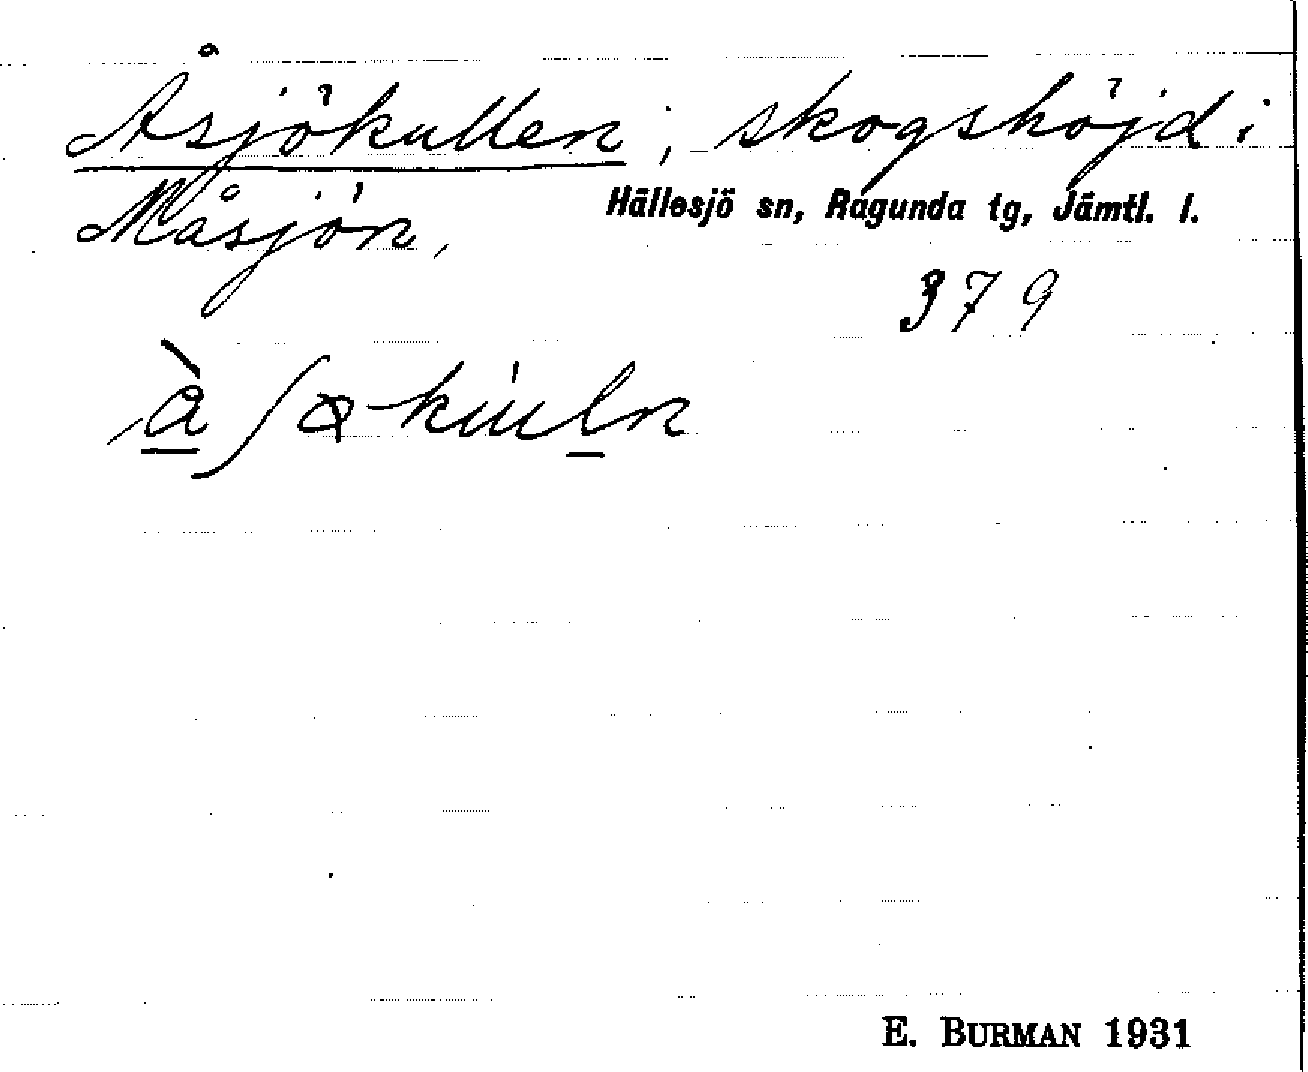 Åsjökullen, skogshöjd i
Måsjön, Hällesjö sn, Ragunda tg, Jämtl. l.
379
E. BURMAN 1931